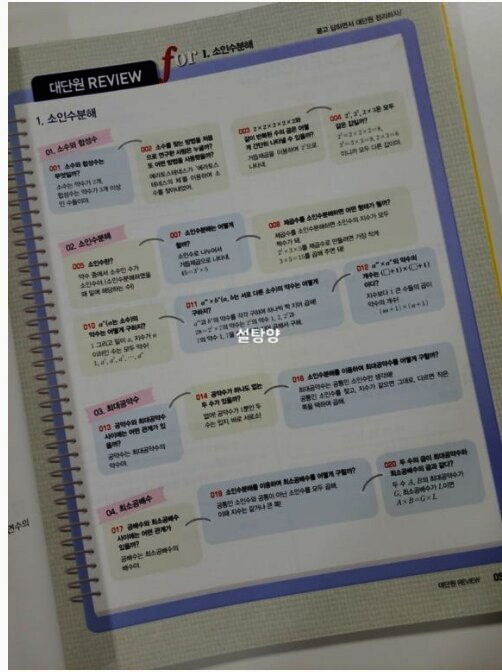 묻고 답하면서 대단원 정리하자!
대단원 REVIEW
for 1. 소인수분해
1. 소인수분해
01. 소수와 합성수
001 소수와 합성수는
무엇일까?
소수는 약수가 2개,
합성수는 약수가 3개 이상
인 수들이야.
002 소수를 찾는 방법을 처음
으로 연구한 사람은 누굴까?
또 어떤 방법을 사용했을까?
에라토스테네스가 '에라토스
테네스의 체'를 이용하여 소
수를 찾아내었어.
003 2×2×2×2×2와
같이 반복된 수의 곱은 어떻
게 간단히 나타낼 수 있을까?
거듭제곱을 이용하여 2⁵으로
나타내.
004 2³, 3², 2×3은 모두
같은 값일까?
2³=2×2×2=8,
3²=3×3=9, 2×3=6
이니까 모두 다른 값이야.
02. 소인수분해
005 소인수란?
약수 중에서 소수인 수가
소인수야. (소인수분해하였을
때 밑에 해당하는 수!)
007 소인수분해는 어떻게
할까?
소인수로 나누어서
거듭제곱으로 나타내.
45=3²×5
008 제곱수를 소인수분해하면 어떤 형태가 될까?
제곱수를 소인수분해하면 소인수의 지수가 모두
짝수가 돼.
010 aⁿ(a는 소수)의
약수는 어떻게 구하지?
1 그리고 밑이 a, 지수가 n
이하인 수는 모두 약수!
1, a¹, a², a³, ⋯, aⁿ
011 aᵐ×bⁿ(a, b는 서로 다른 소수)의 약수는 어떻게
구하지?
설탕양
012 aᵐ×aⁿ의 약수의
개수는 (□+1)×(□+1)
이다?
지수보다 1 큰 수들의 곱이
약수의 개수!
(m+1)×(n+1)
03. 최대공약수
013 공약수와 최대공약수
사이에는 어떤 관계가 있
을까?
공약수는 최대공약수의
약수야.
014 공약수가 하나도 없는
두 수가 있을까?
없어! 공약수가 1뿐인 두
수는 있지, 바로 서로소!
016 소인수분해를 이용하여 최대공약수를 어떻게 구할까?
최대공약수는 공통인 소인수만 생각해!
공통인 소인수를 찾고, 지수가 같으면 그대로, 다르면 작은
쪽을 택하여 곱해.
04. 최소공배수
017 공배수와 최소공배수
사이에는 어떤 관계가
있을까?
공배수는 최소공배수의
배수야.
019 소인수분해를 이용하여 최소공배수를 어떻게 구할까?
공통인 소인수와 공통이 아닌 소인수를 모두 곱해.
이때 지수는 같거나 큰 쪽!
020 두 수의 곱이 최대공약수와
최소공배수의 곱과 같다?
두 수 A, B의 최대공약수가
G, 최소공배수가 L이면
A×B=G×L
대단원 REVIEW